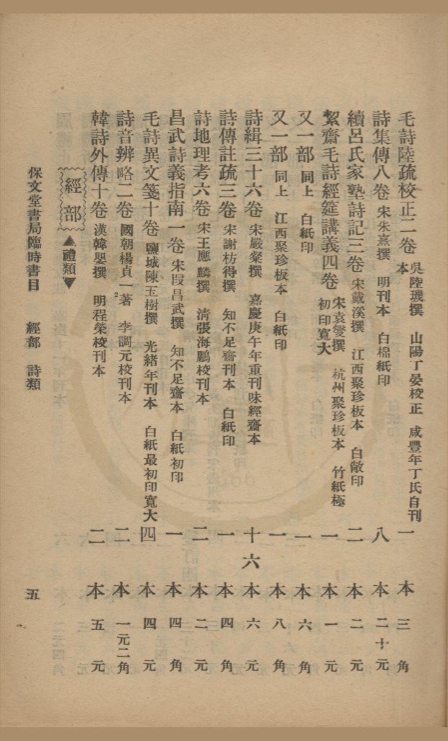 毛詩陸疏校正二卷 吳陸璣撰 山陽丁晏校正 咸豐年丁氏自刊本 一本 三角
詩集傳八卷 宋朱熹撰 明刊本 白棉紙印 八本 二十元
續呂氏家塾詩記三卷 宋戴溪撰 江西聚珍板本 白敞印 二本 二元
絜齋毛詩經筵講義四卷 宋袁燮撰 杭州聚珍板本 竹紙極初印寬大 一本 一元
又一部 同上 白紙印 一本 六角
又一部 同上 江西聚珍板本 白紙印 一本 八角
詩緝三十六卷 宋嚴粲撰 嘉慶庚午年重刊味經齋本 十六本 六元
詩傳註疏三卷 宋謝枋得撰 知不足齋刊本 白紙印 一本 四角
詩地理考六卷 宋王應麟撰 清張海鵬校刊本 二本 二元
昌武詩義指南一卷 宋段昌武撰 知不足齋本 白紙初印 一本 四角
毛詩異文箋十卷 鹽城陳玉樹撰 光緒年刊本 白紙最初印寬大 四本 四元
詩音辨略二卷 國朝楊貞一著 李調元校刊本 二本 一元二角
韓詩外傳十卷 漢韓嬰撰 明程榮校刊本 二本 五元
經部 ▲禮類▼
保文堂書局臨時書目 經部 詩類 五